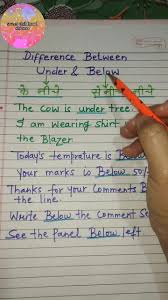 Difference Between
Under & Below
के नीचे से नीचे
The Cow is under tree.
I am Wearing shirt
the Blazer
Today's temprature is Below
Your marks is Below 50%
Thanks for your Comments B
the line.
Write Below the Comment Se
See the Panel Below left.